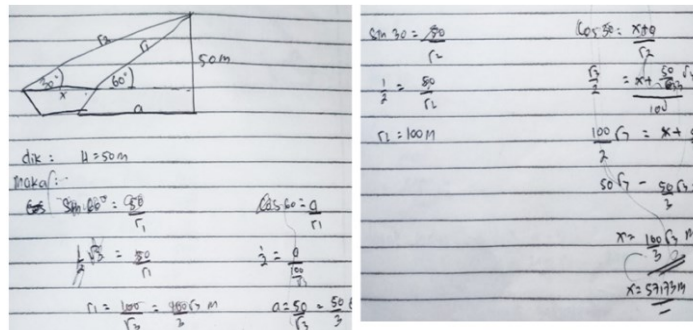 r2
r1
50m
30°
60°
x
a
dik : H = 50m
maka :-
Sin 60° = 50/r1
Cos 60 = a/r1
1/2 √3 = 50/r1
1/2 = a/(100/√3)
r1 = 100/√3 = 100√3/3 m
a = 50/√3 = 50/3
Sin 30 = 50/r2
Cos 30 = x+a/r2
1/2 = 50/r2
r2 = 100 m
100/2 √3 = x +
50√3 - 50√3/3
x = 100/3 √3 m
x = 57,73 m